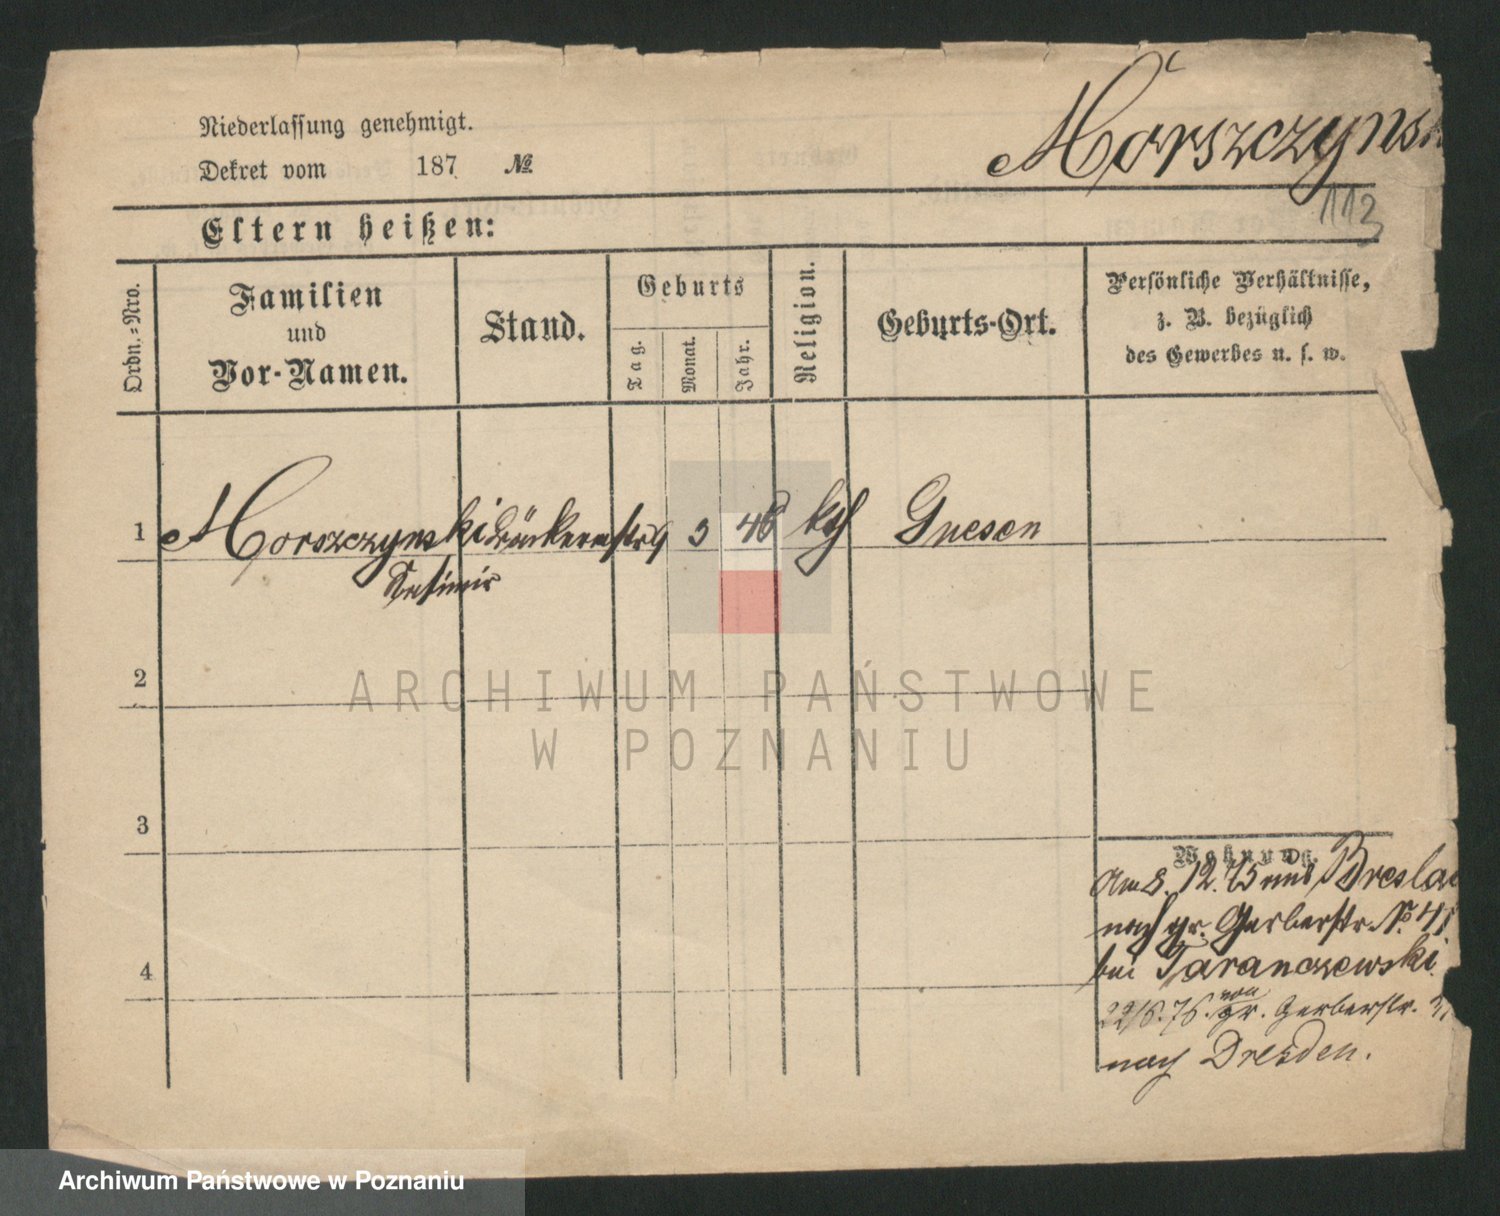 Morszczynsk
Niederlassung genehmigt.
Dekret vom 187 №
112
Eltern heißen:
Ordn.-Nro.
Familien
und
Vor-Namen.
Stand.
Geburts
Tag.
Monat.
Jahr.
Religion.
Geburts-Ort.
Persönliche Verhältnisse,
z. B. bezüglich
des Gewerbes u. s. w.
1 Morszczynski 3 46 kth Gnesen
Kasimir
2
3
4
Wohnung.
Am 8. 12. 75 aus Breslau
nach gr. Gerberstr. № 41
bei Taranczewski
22/6. 76. von gr. Gerberstr.
nach Dresden.
ARCHIWUM PAŃSTWOWE
W POZNANIU
Archiwum Państwowe w Poznaniu